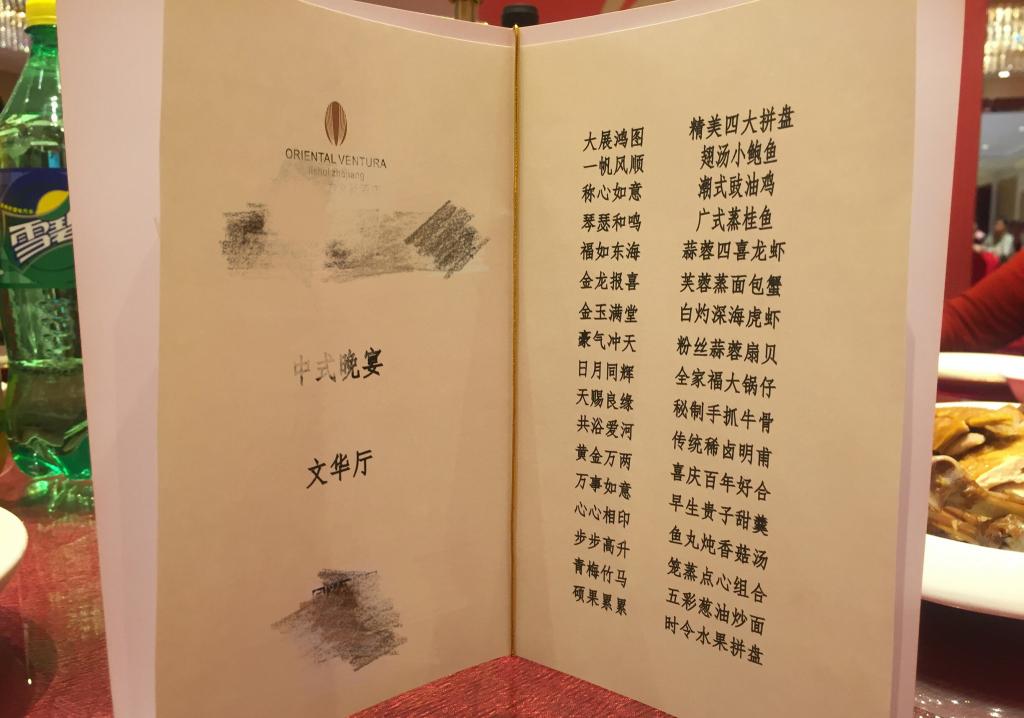 雪碧
ORIENTAL VENTURA
lishui zhejiang
中式晚宴
文华厅
大展鸿图 精美四大拼盘
一帆风顺 翅汤小鲍鱼
称心如意 潮式豉油鸡
琴瑟和鸣 广式蒸桂鱼
福如东海 蒜蓉四喜龙虾
金龙报喜 芙蓉蒸面包蟹
金玉满堂 白灼深海虎虾
豪气冲天 粉丝蒜蓉扇贝
日月同辉 全家福大锅仔
天赐良缘 秘制手抓牛骨
共浴爱河 传统稀卤明甫
黄金万两 喜庆百年好合
万事如意 早生贵子甜羹
心心相印 鱼丸炖香菇汤
步步高升 笼蒸点心组合
青梅竹马 五彩葱油炒面
硕果累累 时令水果拼盘